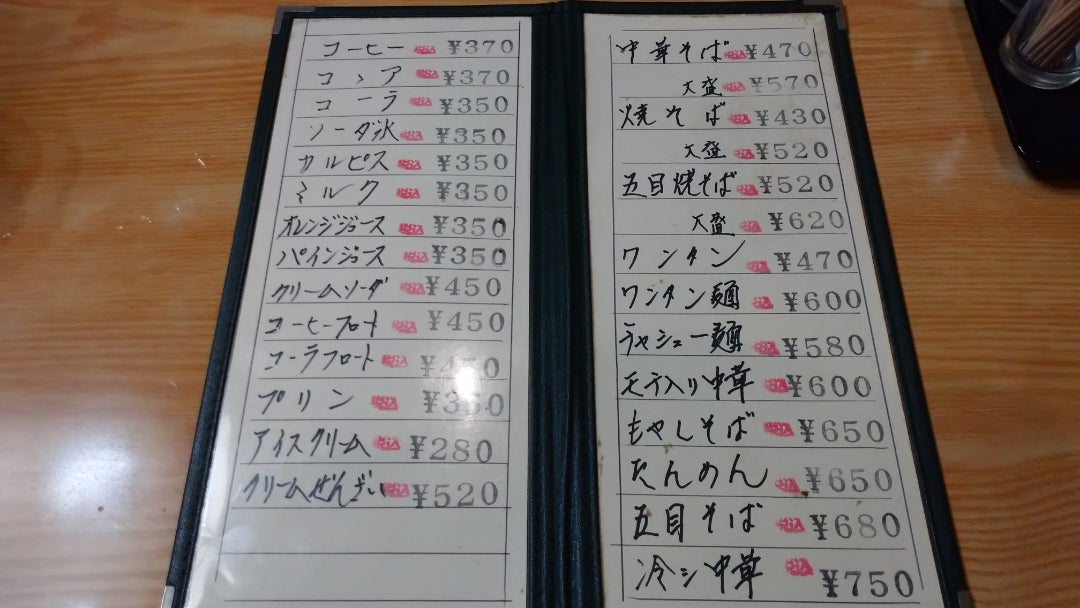 コーヒー 税込 ¥370
コヽア 税込 ¥370
コーラ 税込 ¥350
ソーダ水 税込 ¥350
カルピス 税込 ¥350
ミルク 税込 ¥350
オレンジジュース 税込 ¥350
パインジュース 税込 ¥350
クリームソーダ 税込 ¥450
コーヒーフロート 税込 ¥450
コーラフロート 税込 ¥450
プリン 税込 ¥350
アイスクリーム 税込 ¥280
クリームぜんざい 税込 ¥520
中華そば 税込 ¥470
大盛 税込 ¥570
焼そば 税込 ¥430
大盛 税込 ¥520
五目焼そば 税込 ¥520
大盛 税込 ¥620
ワンタン 税込 ¥470
ワンタン麺 税込 ¥600
チャシュー麺 税込 ¥580
モチ入り中華 税込 ¥600
もやしそば 税込 ¥650
たんめん 税込 ¥650
五目そば 税込 ¥680
冷シ中華 税込 ¥750